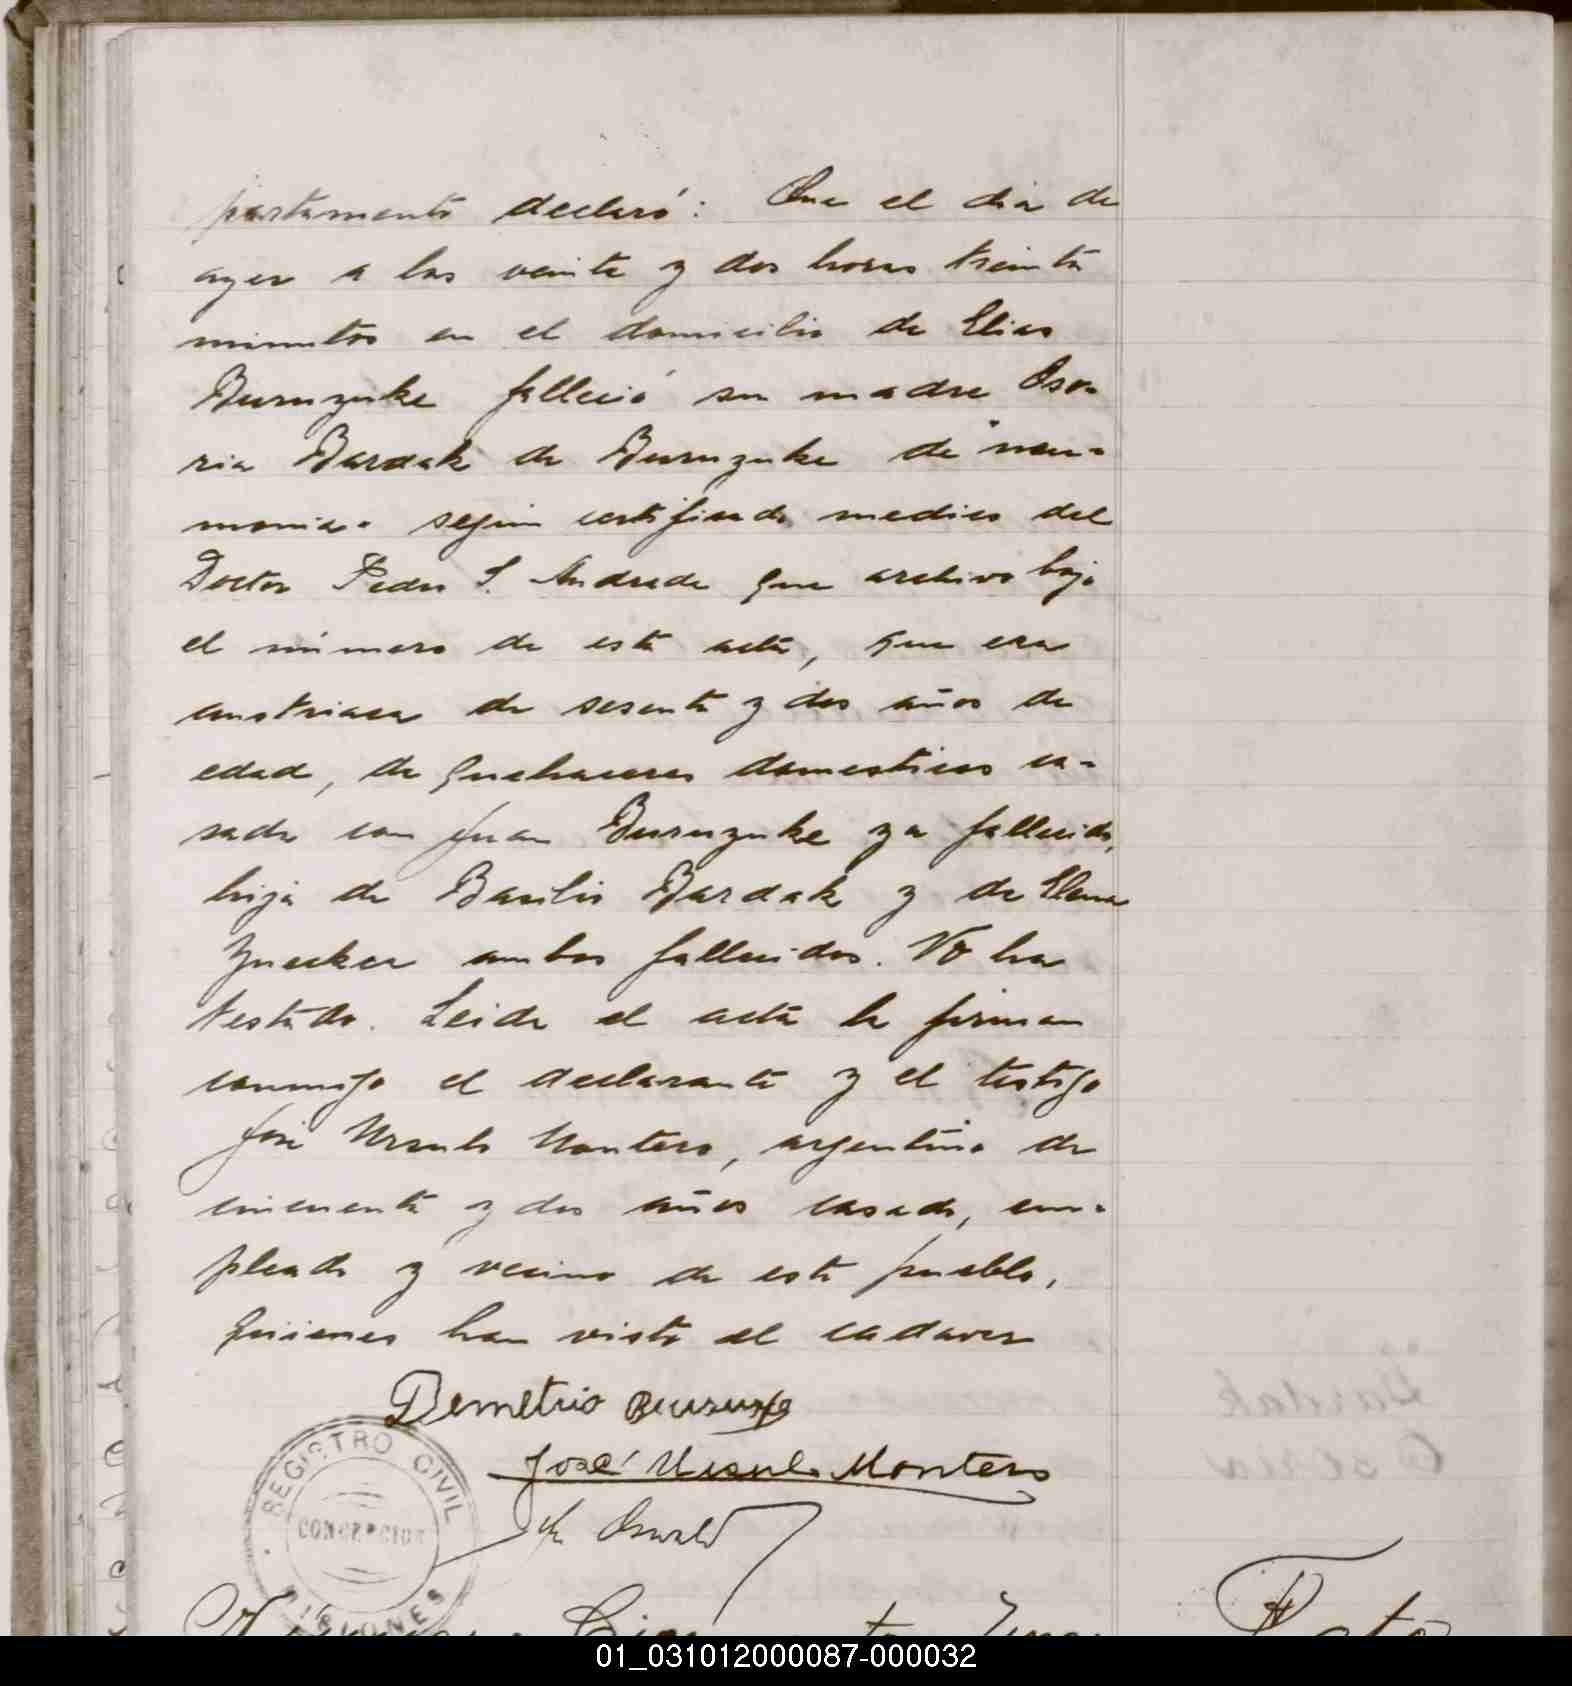 partamento declaró: Que el dia de
ayer a las veinte y dos horas treinta
minutos en el domicilio de Elias
Buruzuke falleció su madre Oso-
ria Bardak de Buruzuke de "neu-
monia" según certificado medico del
Doctor Pedro S. Andrade que archivo bajo
el número de esta acta, que era
austriaca de sesenta y dos años de
edad, de quehaceres domesticos ca-
sada con Juan Buruzuke ya fallecido,
hija de Basilio Bardak y de Elena
ambos fallecidos. No ha
testado. Leida el acta la firman
conmigo el declarante y el testigo
José Ursulo Montero, argentino de
cincuenta y dos años casado, em-
pleado y vecino de este pueblo,
quienes han visto el cadaver
Demetrio
José Ursulo Montero
Oswald
REGISTRO CIVIL
CONCEPCION
MISIONES
01_031012000087-000032